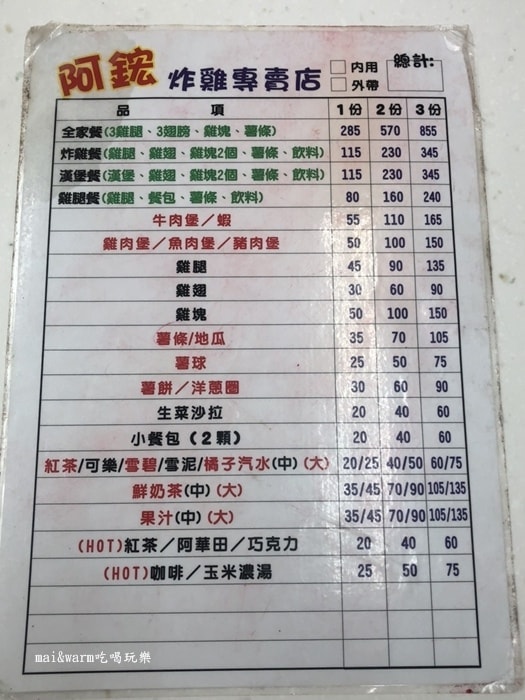 阿鋐 炸雞專賣店 □內用 □外帶 總計:
品項 1份 2份 3份
全家餐(3雞腿、3翅膀、雞塊、薯條) 285 570 855
炸雞餐(雞腿、雞翅、雞塊2個、薯條、飲料) 115 230 345
漢堡餐(漢堡、雞翅、雞塊2個、薯條、飲料) 115 230 345
雞腿餐(雞腿、餐包、薯條、飲料) 80 160 240
牛肉堡／蝦 55 110 165
雞肉堡／魚肉堡／豬肉堡 50 100 150
雞腿 45 90 135
雞翅 30 60 90
雞塊 50 100 150
薯條/地瓜 35 70 105
薯球 25 50 75
薯餅/洋蔥圈 30 60 90
生菜沙拉 20 40 60
小餐包(2顆) 20 40 60
紅茶/可樂/雪碧/雪泥/橘子汽水(中)(大) 20/25 40/50 60/75
鮮奶茶(中)(大) 35/45 70/90 105/135
果汁(中)(大) 35/45 70/90 105/135
(HOT)紅茶／阿華田／巧克力 20 40 60
(HOT)咖啡／玉米濃湯 25 50 75
mai&warm吃喝玩樂